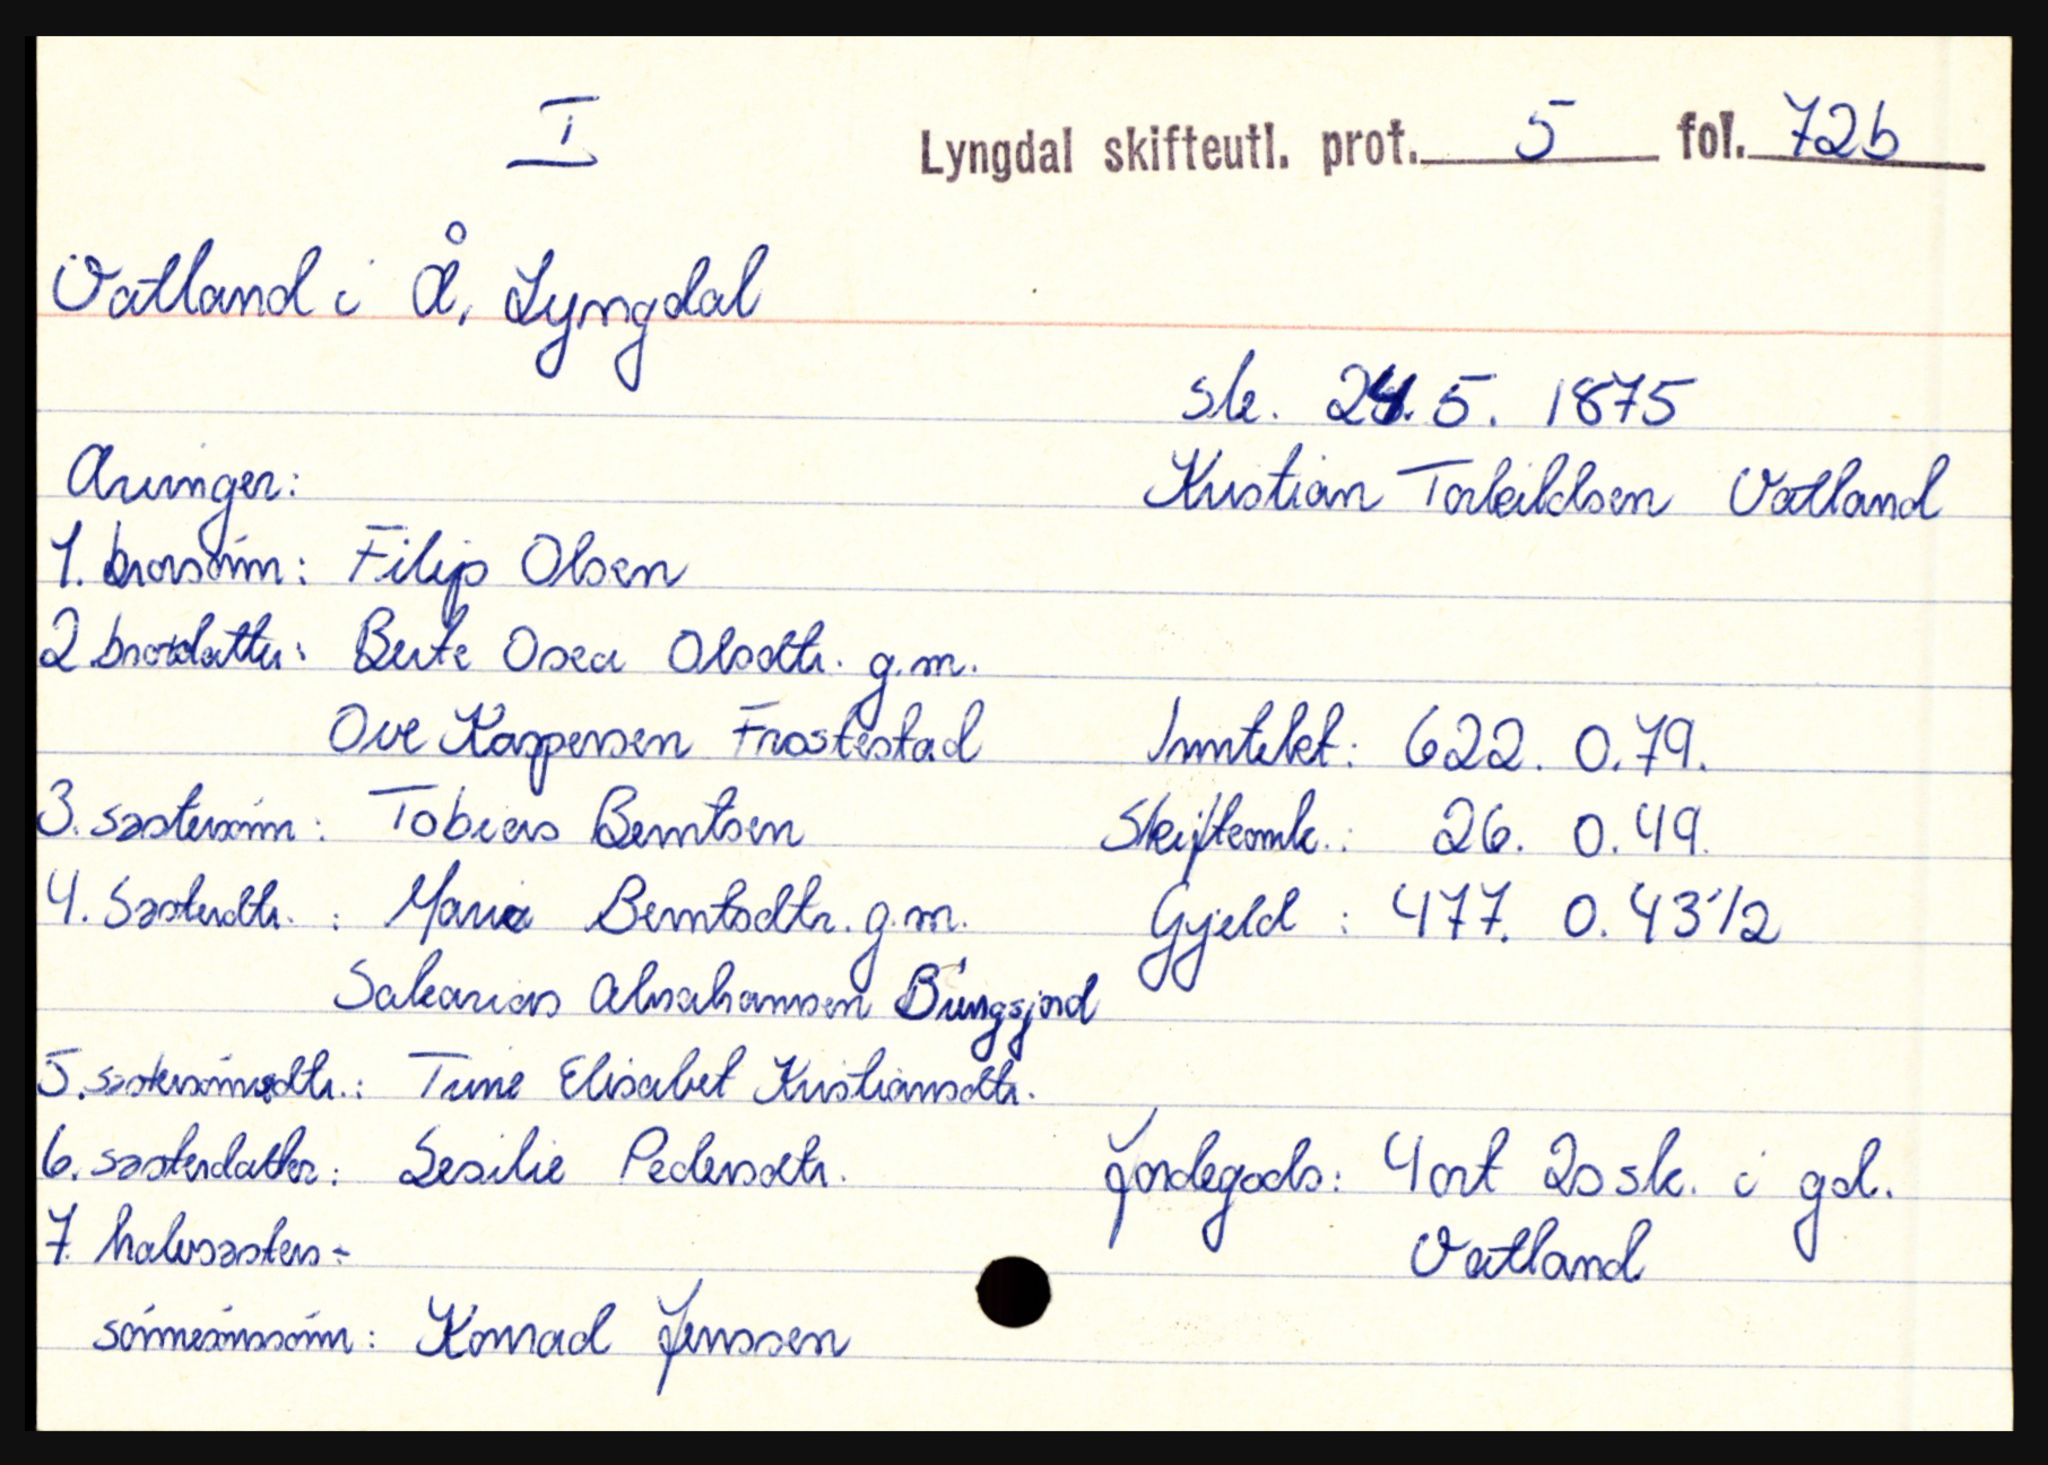 I
Lyngdal skifteutl. prot. 5 fol. 72b
Vatland i Å, Lyngdal
sk. 24.5. 1875
Kristian Torkildsen Vatland
Arvinger:
1. brorsønn: Filip Olsen
2 brordatter: Berte Osea Olsdtr. g.m.
Ove Kaspersen Frøstestad
3. søstersønn: Tobias Berntsen
4. Søsterdtr. : Maria Berntsdtr. g.m.
Sakarias Abrahamsen Bringsjord
5. søstersønnsdtr.: Trine Elisabet Kristiansdtr.
6. søsterdatter: Sesilie Pedersdtr.
7. halvsøsters-
sønnesønssønn: Konrad Jenssen
Inntekt: 622. 0.79.
Skifteomk.: 26. 0.49.
Gjeld : 477. 0.43 1/2
Jordegods: 4 ort 20 sk. i gd.
Vatland